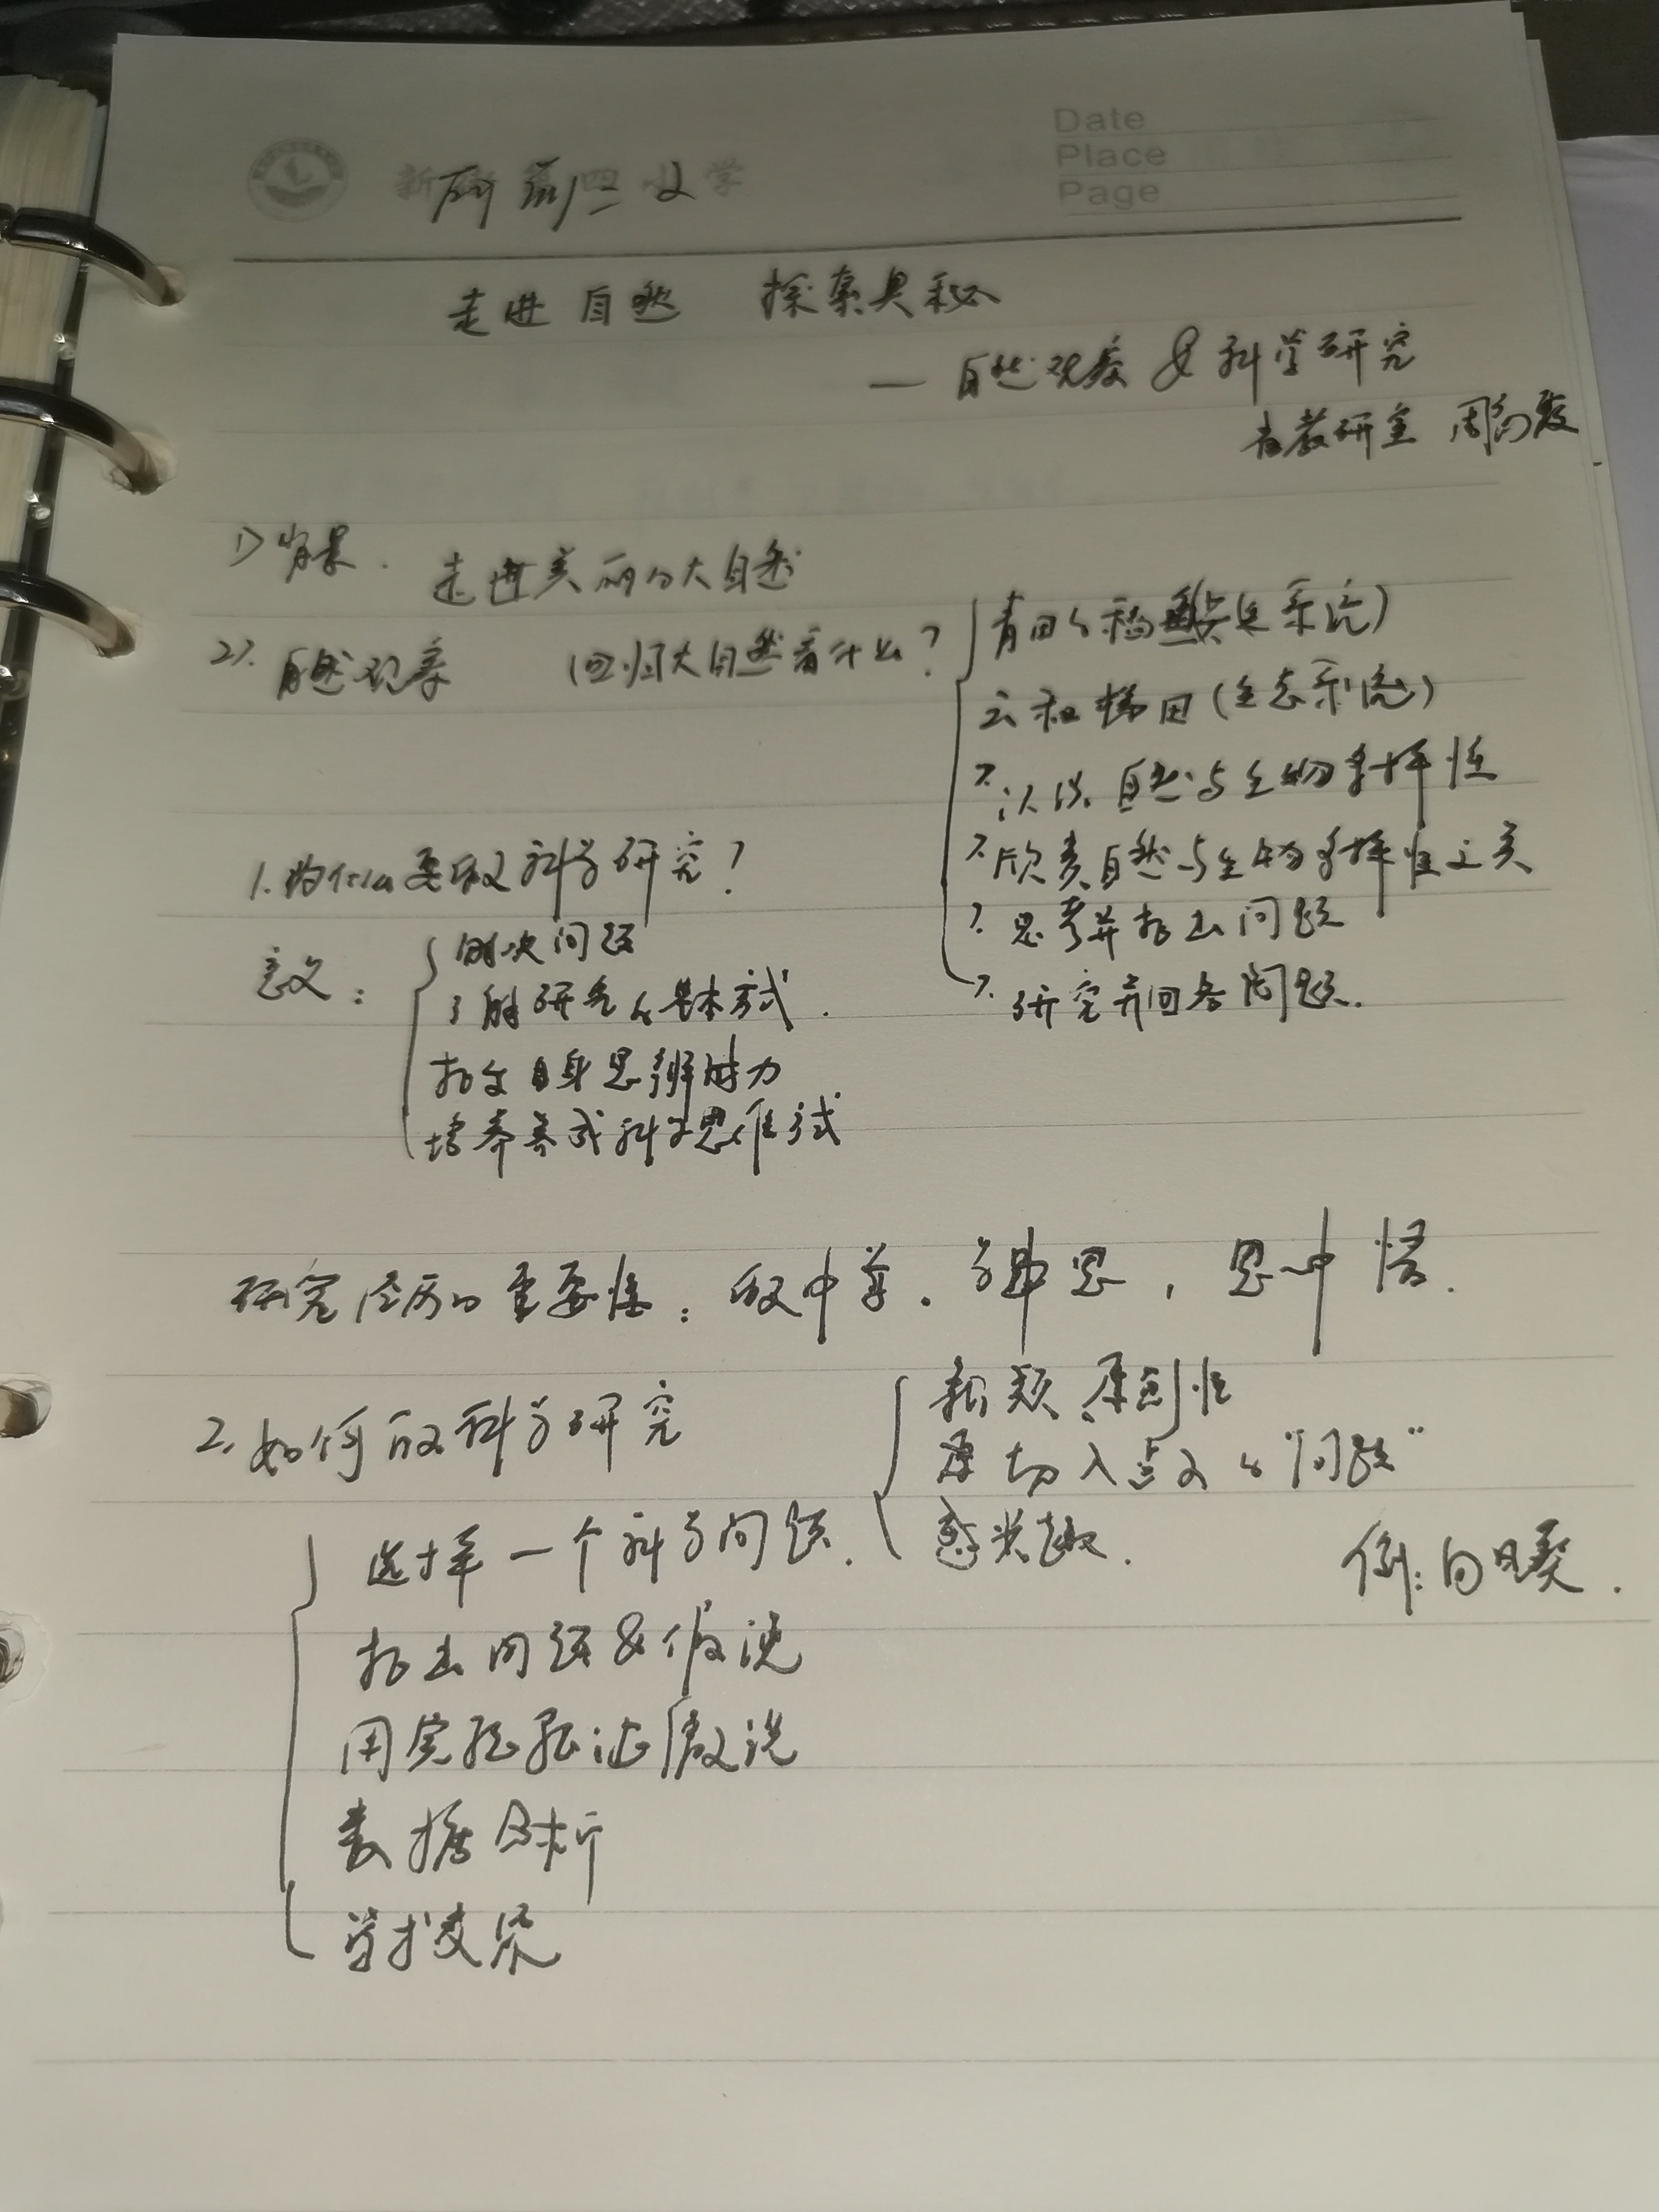 Date
Place
Page
走进自然 探索奥秘
— 自然观察 & 科学研究
省教研室 周
1> 背景. 走进美丽的大自然
2>. 自然观察 回归大自然看什么?
青田的稻鱼共生系统)
云和梯田(生态系统)
7. 认识自然与生物多样性
7. 欣赏自然与生物多样性之美
7. 思考并提出问题
7. 研究并回答问题.
1. 为什么要做科学研究?
意义:
解决问题
了解研究的基本方式.
提金自身思辨能力
培养养成科学思维方式
研究经历的重要性: 做中学. 学中思, 思中悟.
2. 如何做科学研究
新颖 原创性
切入点 的"问题"
感兴趣.
例: 向日葵.
选择一个科学问题.
提出问题&假说
用实验验证假说
数据分析
学术交流